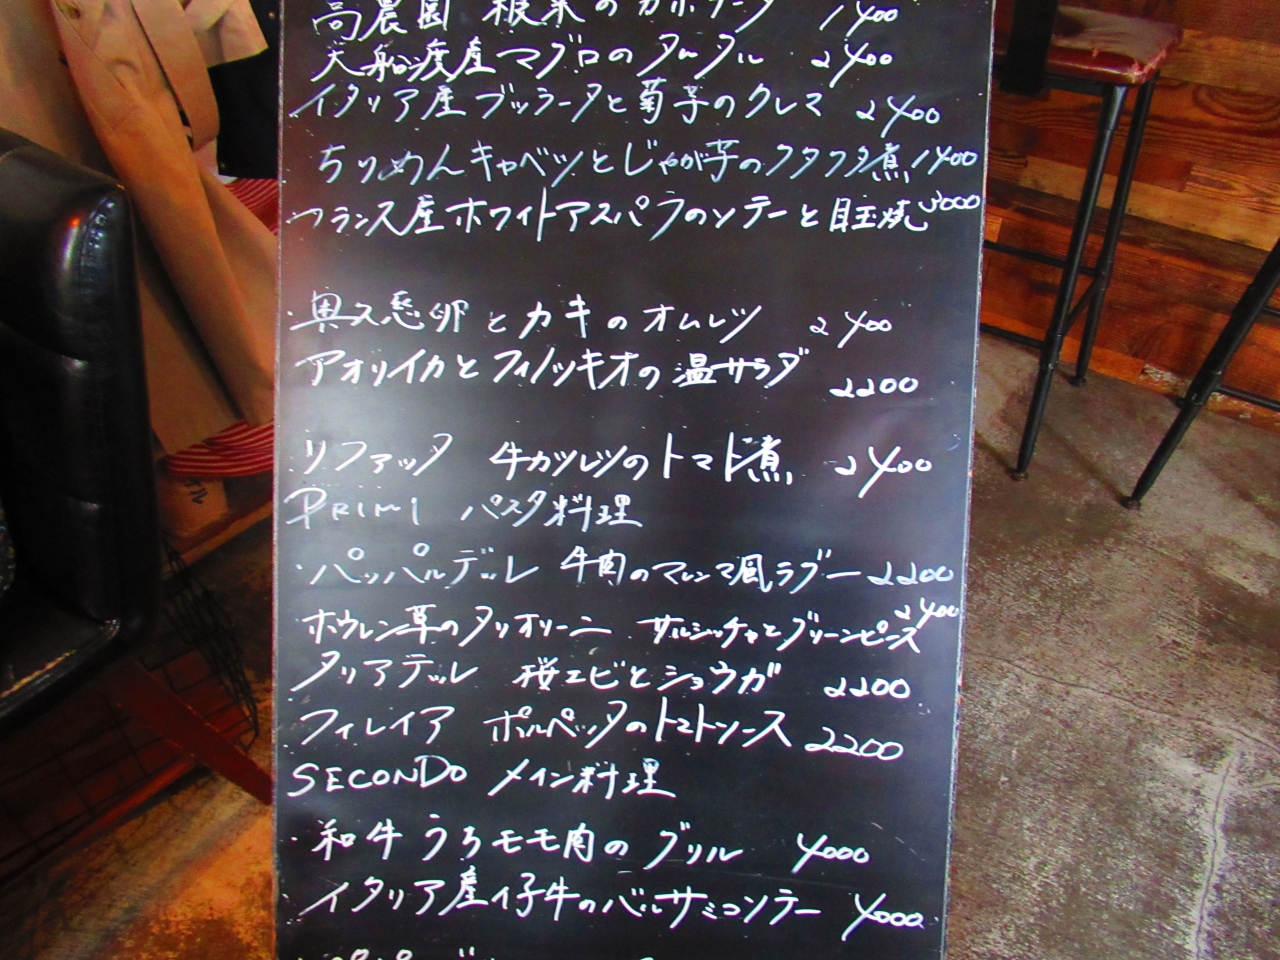 高農園 根菜のカポナータ 1400
大船渡産マグロのタルタル 2400
イタリア産ブッラータと菊芋のクレマ 2400
ちりめんキャベツとじゃが芋のクタクタ煮 1400
・フランス産ホワイトアスパラのソテーと目玉焼 3000
・奥久慈卵とカキのオムレツ 2400
アオリイカとフィノッキオの温サラダ 2200
トリファッタ 牛カツレツのトマト煮 2400
PRIMI パスタ料理
・パッパルデッレ 牛肉のマレンマ風ラグー 2200
ホウレン草のタリオリーニ サルシッチャとグリーンピース 2400
タリアテッレ 桜エビとショウガ 2200
フィレイア ポルペッタのトマトソース 2200
SECONDO メイン料理
・和牛うちモモ肉のグリル 4000
・イタリア産仔牛のバルサミコソテー 4000